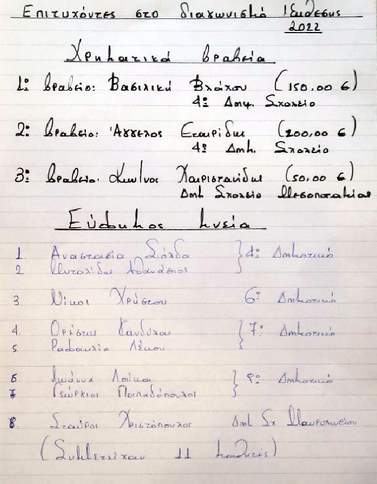 Επιτυχόντες στο διαγωνισμό Έκθεσης
2022
Χρηματικά βραβεία
1ο βραβείο: Βασιλική Βλάχου (150,00 €)
4ο Δημ. Σχολείο
2ο βραβείο: Άγγελος Σταυρίδης (200,00 €)
4ο Δημ. Σχολείο
3ο βραβείο: Κων/νος Χαρισανίδης (50,00 €)
Δημ Σχολείο Μεσοποταμίας
Εύφημος μνεία
1 Αναστασία } 4ο Δημοτικό
2 Αθανάσιος
3 Νίκος Χρήστου 6ο Δημοτικό
4 Ορέστης } 7ο Δημοτικό
5 Ραφαηλία Λέκου
6 Ιωάννα } 9ο Δημοτικό
7 Γεώργιος Παπαδόπουλος
8 Σταύρος Χριστόπουλος Δημ Σχ Μαυροχωρίου
(Συμμετείχαν 11 μαθητές)